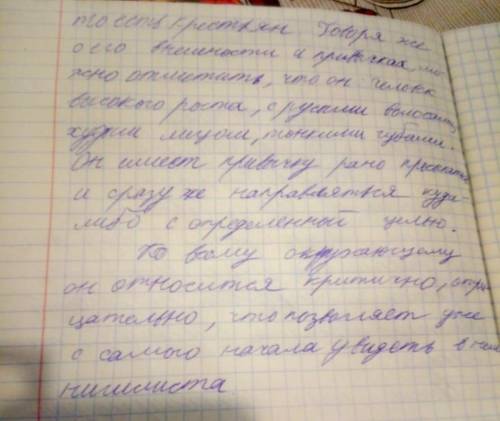 то есть крестьян Говоря же
о его внешности и привычках, мо
жно отметить, что он человек
высокого роста, с русыми волосами,
худым лицом, тонкими губами.
Он имеет привычку рано просыпаться
и сразу же направляться куда-
либо с определенной целью.
Ко всему окружающему
он относится критично, отри
цательно, что позволяет уже
с самого начала увидеть в нем
нигилиста